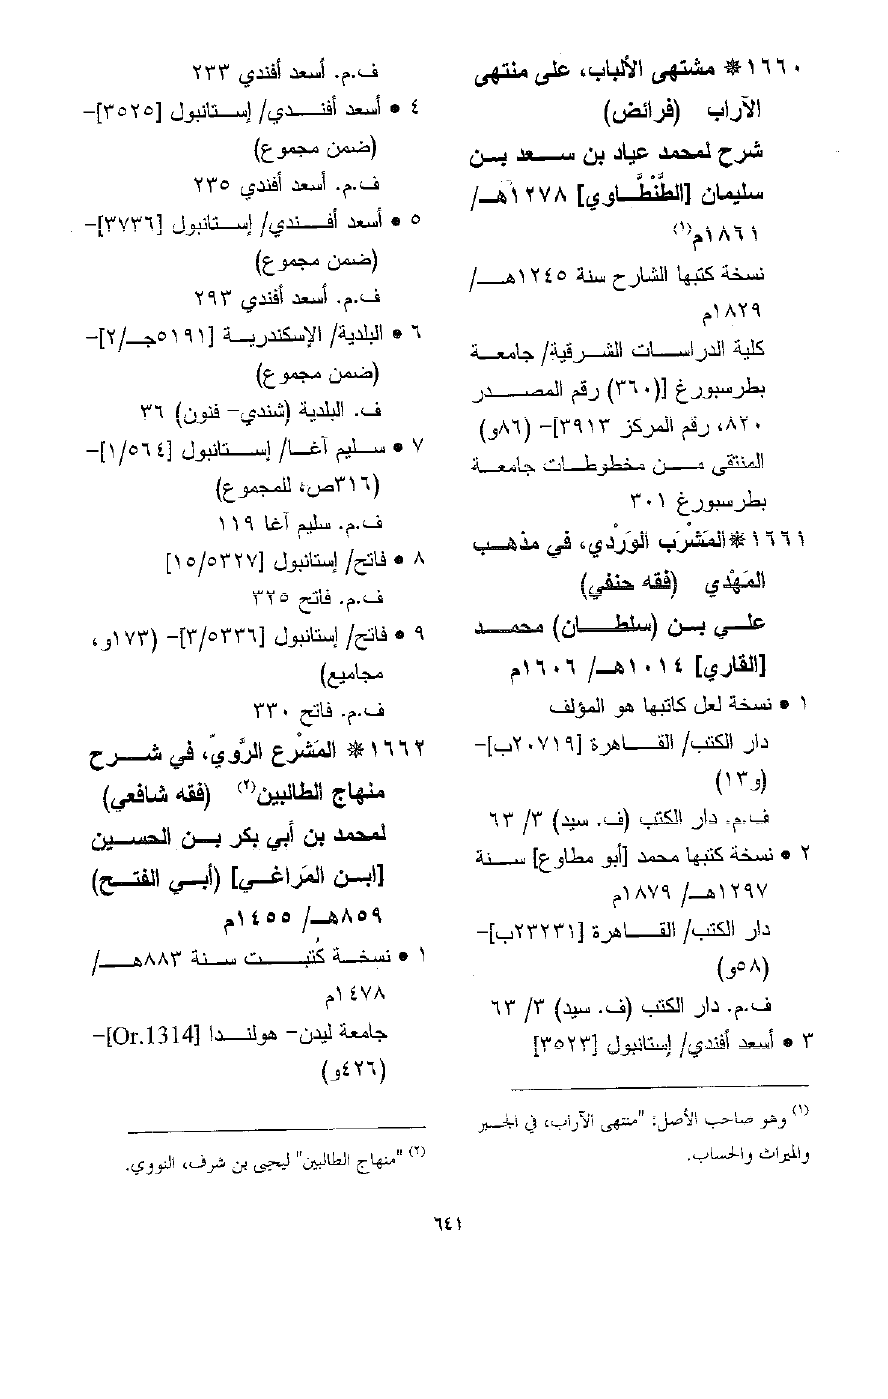 ١٦٦٠ * مشتهى الألباب، على منتهى
الآراب (فرائض)
شرح لمحمد عياد بن سعد بن
سليمان [الطَّنْطَاوي] ١٢٧٨هـ/
١٨٦١م(١)
نسخة كتبها الشارح سنة ١٢٤٥هـ/
١٨٢٩م
كلية الدراسات الشرقية/ جامعة
بطرسبورغ [(٣٦٠) رقم المصدر
٨٢٠، رقم المركز ٣٩١٣]- (٨٦و)
المنتقى من مخطوطات جامعة
بطرسبورغ ٣٠١
١٦٦١ * المَشْرَب الوَرْدي، في مذهب
المَهْدي (فقه حنفي)
علي بن (سلطان) محمد
[القاري] ١٠١٤هـ/ ١٦٠٦م
١ • نسخة لعل كاتبها هو المؤلف
دار الكتب/ القاهرة [٢٠٧١٩ب]-
(١٣و)
ف.م. دار الكتب (ف. سيد) ٣/ ٦٣
٢ • نسخة كتبها محمد [أبو مطاوع] سنة
١٢٩٧هـ/ ١٨٧٩م
دار الكتب/ القاهرة [٢٣٢٣١ب]-
(٥٨و)
ف.م. دار الكتب (ف. سيد) ٣/ ٦٣
٣ • أسعد أفندي/ إستانبول [٣٥٢٣]
(١) وهو صاحب الأصل: "منتهى الآراب، في الجبر
والميراث والحساب.
ف.م. أسعد أفندي ٢٣٣
٤ • أسعد أفندي/ إستانبول [٣٥٢٥]-
(ضمن مجموع)
ف.م. أسعد أفندي ٢٣٥
٥ • أسعد أفندي/ إستانبول [٣٧٣٦]-
(ضمن مجموع)
ف.م. أسعد أفندي ٢٩٣
٦ • البلدية/ الإسكندرية [٥١٩١جـ/٢]-
(ضمن مجموع)
ف. البلدية (شندي- فنون) ٣٦
٧ • سليم آغا/ إستانبول [١/٥٦٤]-
(٣١٦ص، للمجموع)
ف.م. سليم آغا ١١٩
٨ • فاتح/ إستانبول [١٥/٥٣٢٧]
ف.م. فاتح ٣٢٥
٩ • فاتح/ إستانبول [٣/٥٣٣٦]- (١٧٣و،
مجاميع)
ف.م. فاتح ٣٣٠
١٦٦٢ * المَشْرع الرَّويّ، في شرح
منهاج الطالبين(٢) (فقه شافعي)
لمحمد بن أبي بكر بن الحسين
[ابن المَراغي] (أبي الفتح)
٨٥٩هـ/ ١٤٥٥م
١ • نسخة كُتبت سنة ٨٨٣هـ/
١٤٧٨م
جامعة ليدن- هولندا [Or.1314]-
(٤٢٦و)
(٢) "منهاج الطالبين" ليحيى بن شرف، النووي.
٦٤١